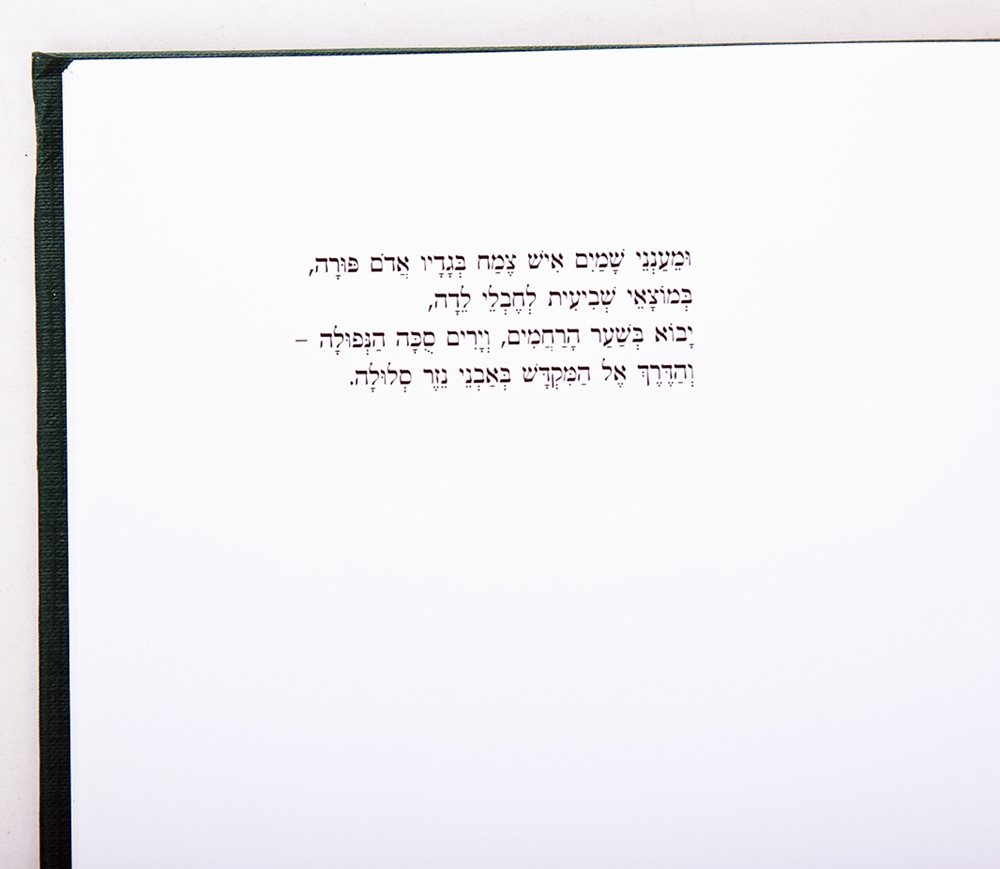 וּמֵעַנְנֵי שָׁמַיִם אִישׁ צֶמַח בְּגָדָיו אֲדֹם פּוּרָה,
בְּמוֹצָאֵי שְׁבִיעִית לְחֶבְלֵי לֵדָה,
יָבוֹא בְּשַׁעַר הָרַחֲמִים, וְיָרִים סֻכָּה הַנְּפוּלָה –
וְהַדֶּרֶךְ אֶל הַמִּקְדָּשׁ בְּאַבְנֵי נֵזֶר סְלוּלָה.